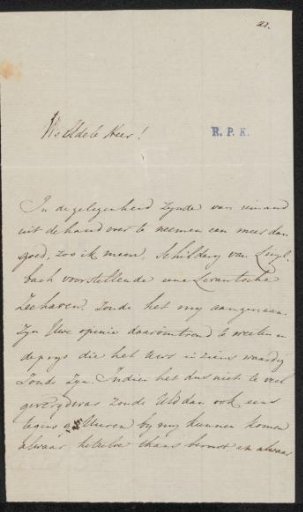 22.
WelEdele Heer!
R. P. K.
In de gelegenheid zynde van iemand
uit de hand over te neemen een meer dan
goed, zoo ik meen, Schildery van Lingl-
bach voorstellende eene Levantsche
Zeehaven. Zoude het my aangenaam
zyn Uwe opinie daaromtrend te weeten en
de prys die het Uws inziens waardig
zoude zyn. Indien het dus niet te veel
gevergd was zoude UEd dan ook eens
by my kunnen komen
alwaar hetzelve thans berust en alwaar